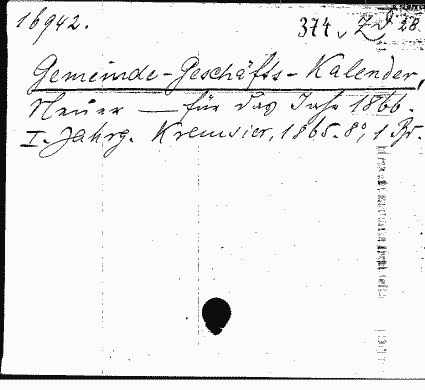 16942.
374, Z 28.
Gemeinde-Geschäfts-Kalender,
Neuer — für das Jahr 1866.
I. Jahrg. Kremsier, 1865. 8°, 1 Br.